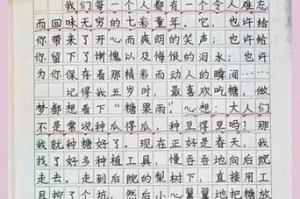 我们每一个人都有一个令人难忘
而回味无穷的七彩童年。它，也许给
你带来了开心而爽朗的笑声；也许给
你留下了惭愧以及悔恨的泪水；也许
为你保存着那精彩而动人的瞬间……
记得我五岁时，最喜欢吃糖，做
梦都想着下“糖果雨”。心想：大人们
不是常说种瓜得瓜，种豆得豆吗？那
我就种糖好了。现在正好是春天，我
找了好多种植工具，慢吞吞地向后院
走去。走到后院的梨树下，直接用工
具挖了个坑，然后小心翼翼地把糖放